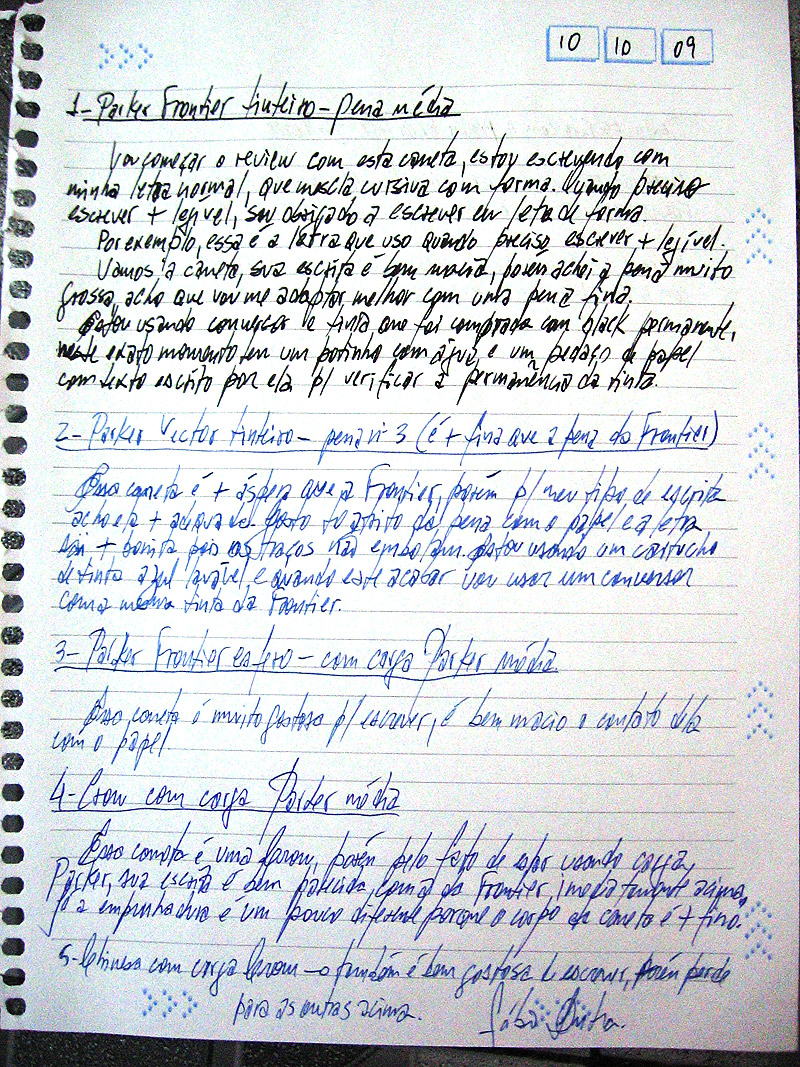 10 10 09
1- Parker Frontier tinteiro - pena média
Vou começar o review com esta caneta, estou escrevendo com
minha letra normal, que mescla cursiva com forma. Quando preciso
escrever + legível, sou obrigado a escrever em letra de forma.
Por exemplo, essa é a letra que uso quando preciso escrever + legível.
Vamos à caneta, sua escrita é bem macia, porém achei a pena muito
grossa, acho que vou me adaptar melhor com uma pena fina.
Estou usando conversor e tinta que foi comprada com black permanente,
neste exato momento tem um potinho com água e um pedaço de papel
com texto escrito por ela p/ verificar a permanência da tinta.
2- Parker Vector tinteiro - pena nº 3 (é + fina que a pena da Frontier)
Essa caneta é + áspera que a Frontier, porém p/ meu tipo de escrita
achei a + adequada. Gosto do atrito da pena com o papel e a letra
sai + bonita pois os traços não embolam. Estou usando um cartucho
de tinta azul lavável e quando este acabar vou usar um conversor
com a mesma tinta da Frontier.
3- Parker Frontier esfero - com carga Parker média
Essa caneta é muito gostosa p/ escrever, é bem macio o contato dela
com o papel.
4- Crown com carga Parker média
Essa caneta é uma Crown, porém pelo fato de estar usando carga
Parker, sua escrita é bem parecida com a da Frontier imediatamente acima,
já a empunhadura é um pouco diferente porque o corpo da caneta é + fino.
5- com carga Crown - também é bem gostosa de escrever, porém perde
para as outras acima.
Fábio